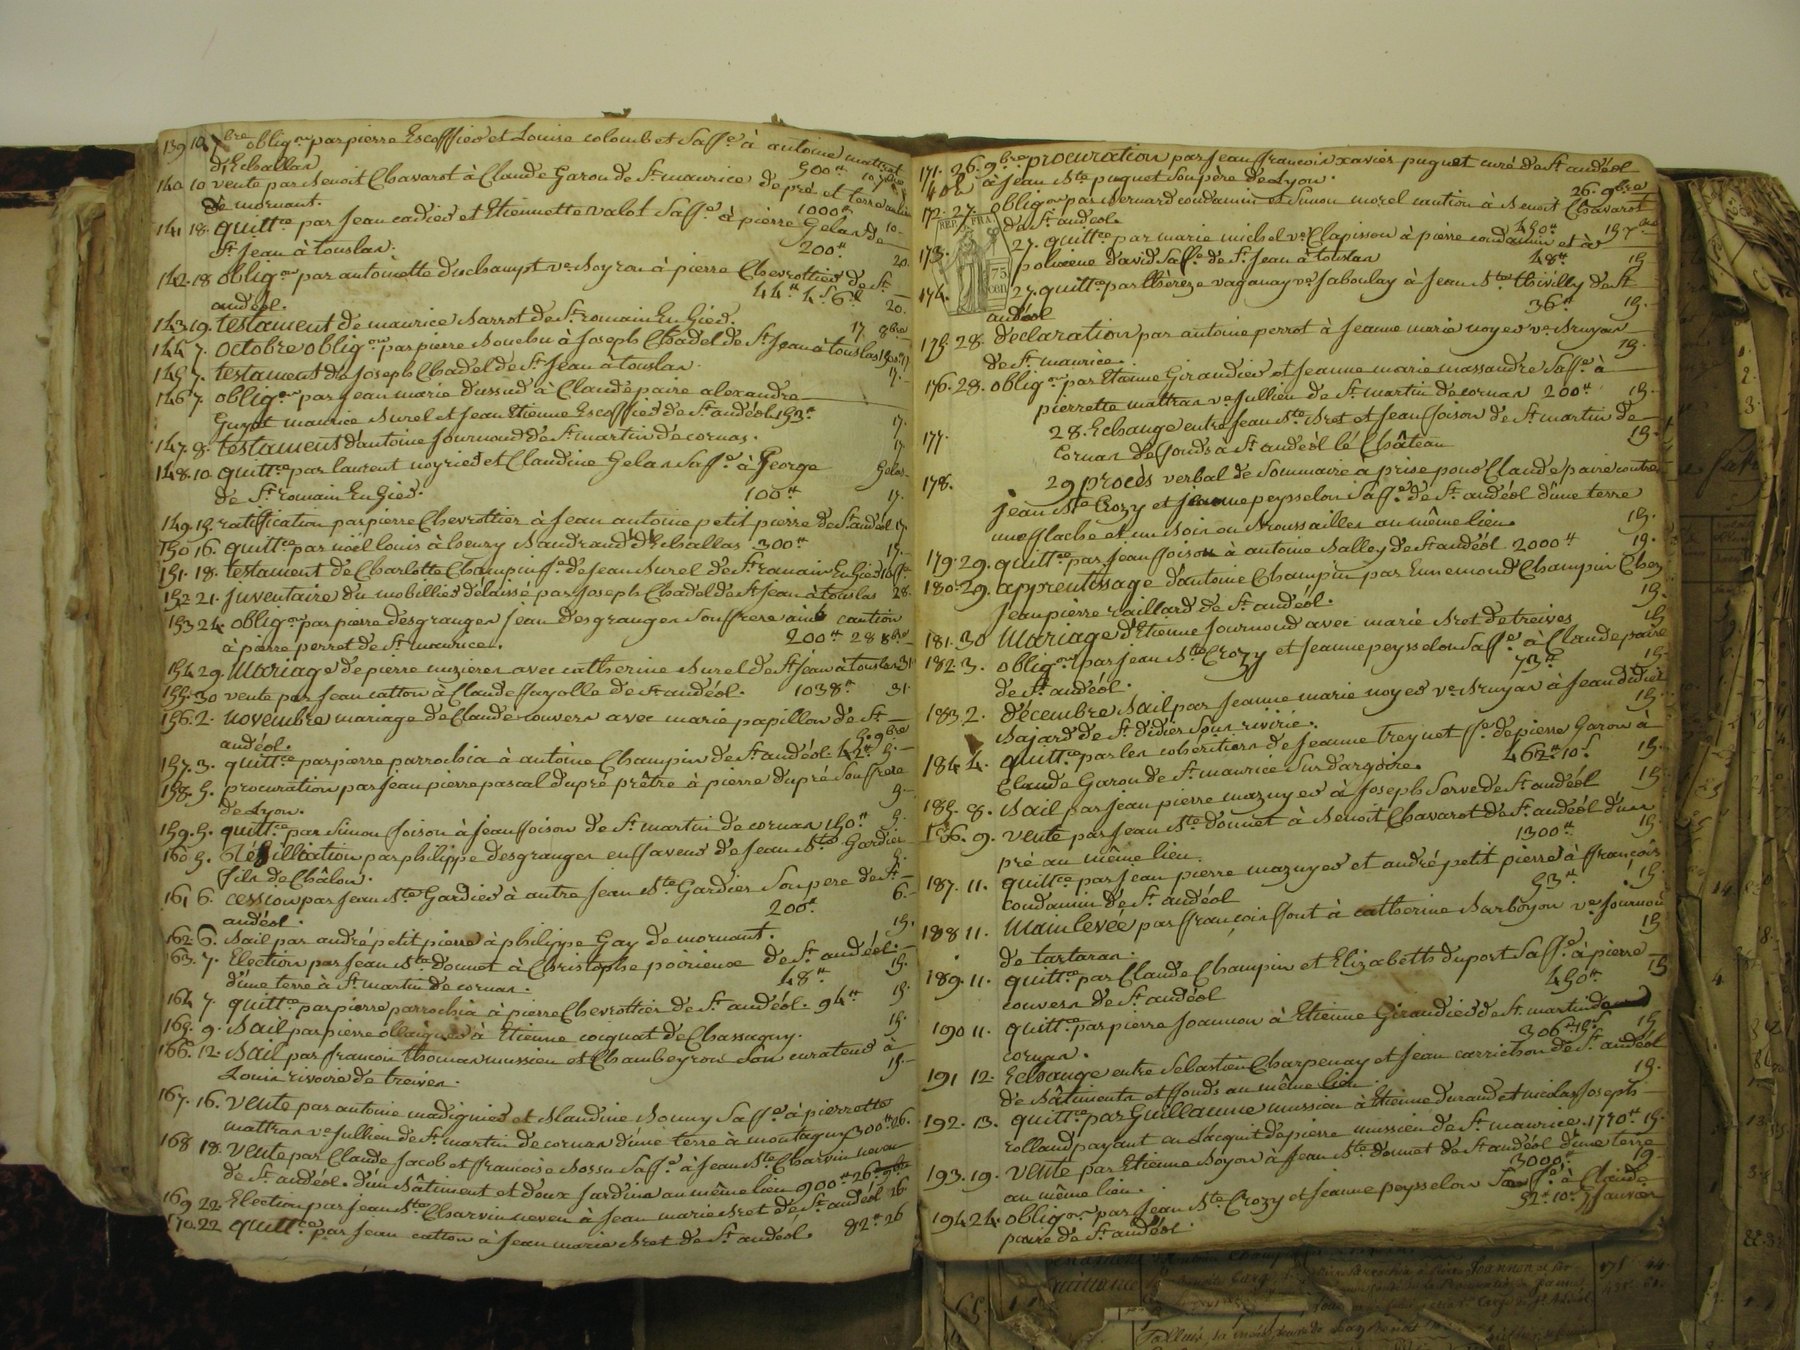 139 10 7bre obligon par pierre Escoffier et Louise colombet Sa ffe à antoine mattrat
d'Echallas 500tt 10 7bre
140 10 vente par Benoit Chavarot à Claude Garon de St maurice de pré et terre
de mornant. 1000tt
141 18. quittce par Jean cadier et Etiennette valot Sa ffe à pierre Gelas de
St Jean à touslas. 200tt 20.
142. 18 obligon par antoinette duchampt ve Boyron à pierre Chevrottier de St
andéol. 44tt 4s 6d 20.
143 19. testament de maurice Barrot de St romain En Gier.
144 7. octobre obligon par pierre Bouchu à Joseph Chadel de St Jean à touslas 17. 8bre
145 7. testament de Joseph Chadel de St Jean à touslas. 17.
146 7. obligon par Jean marie Dussud à Claude paire alexandre
Guyot maurice Burel et Jean Etienne Escoffier de St andéol 193tt 17.
147. 8. testament d'antoine Journoud de St martin de cornas. 17.
148. 10 quittce par laurent noyrier et Claudine Gelas Sa ffe à George Gelas
de St romain En Gier. 100tt 17.
149. 15. ratiffication par pierre Chevrottier à Jean antoine petit pierre de St andéol 17.
150 16. quittce par noël louis à henry Baudrand d'Echallas 300tt 17.
151. 18. testament de Charlotte Champin ffe de Jean Burel de St romain En Gier
152 21. Inventaire du mobillier délaissé par Joseph Chadel de St Jean à touslas 28.
153 24. obligon par pierre desgranges Jean desgranges Son frere ainé caution
à pierre perrot de St maurice. 200tt 28 8bre
154 29. Mariage de pierre mazieres avec catherine Burel de St Jean à touslas 31
155. 30 vente par Jean catton à Claude ffayolle de St andéol. 1038tt 31.
156. 2. novembre mariage de Claude couvers avec marie papillon de St
andéol. 5. 9bre
157. 3. quittce par pierre parrochia à antoine Champin de St andéol 42tt 5.
158. 5. procuration par Jean pierre pascal dupré prêtre à pierre dupré Son frere
de Lyon. 9.
159. 5. quittce par Simon foison à Jean foison de St martin de cornas 150tt 5.
160 5. Résilliation par philippe desgranges en faveur de Jean Bte Gardier
fils de Châlon. 5.
161 6. cession par Jean Bte Gardier à autre Jean Bte Gardier Son pere de St
andéol. 200tt 6.
162. 6. Bail par andré petit pierre à philippe Gay de mornant. 15.
163. 7. Election par Jean Bte donnet à Christophe poirieux de St andéol.
d'une terre à St martin de cornas. 48tt 15.
164 7. quittce par pierre parrochia à pierre Chevrottier de St andéol. 94tt 15.
165. 9. Bail par pierre ollaignes à Etienne cocquat de Chassagny. 15.
166. 12. Bail par francois thomas mussieu et Chambeyron Son curateur à
Louis rivoire de treives. 15
167. 16. vente par antoine madignier et Blandine Bonny Sa ffe à pierrette
mattras ve Jullien de St martin de cornas d'une terre à montagny 300tt 26.
168 18. vente par Claude Jacob et francoise Bossu Sa ffe à Jean Bte Charvin neveu
de St andéol. d'un Bâtiment et deux Jardins au même lieu 900tt 26 9bre
169 22. Election par Jean Bte Charvin neveu à Jean marie Bret de St andéol 26
170. 22 quittce par Jean catton à Jean marie Bret de St andéol. 82tt 26
171. 26. 9bre procuration par Jean francois xavier puguet curé de St andéol
à Jean Bte puguet Son père de Lyon. 26. 9bre
172. 27. obligon par Bernard condamin et Simon morel caution à Benoit Chavarot
de St andéol. 450tt 15 7bre
REP. FRA
75
cen
173. 27. quittce par marie michel ve Clapisson à pierre condamin et à
polixene david Sa ffe de St Jean à touslas 48tt 15
174. 27. quittce par thérèze vaganay ve Jaboulay à Jean Bte thivilly de St
andéol 36tt 15.
175. 28. declaration par antoine perrot à Jeanne marie noyer ve Bruyas
de St maurice. 15.
176. 28. obligon par Etienne Giraudier et Jeanne marie massandre Sa ffe à
pierrette mattras ve Jullien de St martin de cornas 200tt 15.
177. 28. Echange entre Jean Bte Bret et Jean foison de St martin de
Cornas de fonds à St andéol le Château 15.
178. 29 procès verbal de Sommaire a prise pour Claude paire contre
Jean Bte Crozy et Jeanne peysselon Sa ffe de St andéol d'une terre
une flache et un Bois ou Broussailles au même lieu 15.
179. 29. quittce par Jean foison à antoine Balley de St andéol 2000tt 15.
180. 29. apprentissage d'antoine Champin par Ennemond Champin Chez
Jean pierre raillard de St andéol. 15.
181. 30 Mariage d'Etienne Journoud avec marie Bret de treives 15
182. 3. obligon par Jean Bte Crozy et Jeanne peysselon Sa ffe à Claude paire
de St andéol. 73tt 15
183. 2. décembre Bail par Jeanne marie noyer ve Bruyas à Jean didier
Bajard de St didier Sous rivirie. 15.
184 4. quittce par les cohéritiers de Jeanne treynet ffe de pierre Garon à
Claude Garon de St maurice Sur dargoire. 462tt 10s 15.
185. 8. Bail par Jean pierre mazuyer à Joseph Serve de St andéol 15
186. 9. vente par Jean Bte donnet à Benoit Chavarot de St andéol d'un
pré au même lieu. 1300tt 15
187. 11. quittce par Jean pierre mazuyer et andré petit pierre à francois
condamin de St andéol 53tt 15.
188 11. Mainlevée par francois font à catherine Barboyon ve Journoud
de tartaras. 15
189. 11. quittce par Claude Champin et Elizabeth duport Sa ffe à pierre
couvers de St andéol 450tt 15
190 11. quittce par pierre Joannon à Etienne Giraudier de St martin de
cornas. 306tt 15s 15
191 12. Echange entre Sébastien Charpenay et Jean carrichon de St andéol
de Bâtiments et fonds au même lieu. 15.
192. 13. quittce par Guillaume mussieu à Etienne durand et nicolas Joseph
rolland payant en l'acquit de pierre mussieu de St maurice. 1770tt 15.
193. 19. vente par Etienne Boyon à Jean Bte donnet de St andéol d'une terre
au même lieu. 3000tt 19.
194 24. obligon par Jean Bte Crozy et Jeanne peysselon Sa ffe à Claude
paire de St andéol. 52tt 10s 5 Janvier